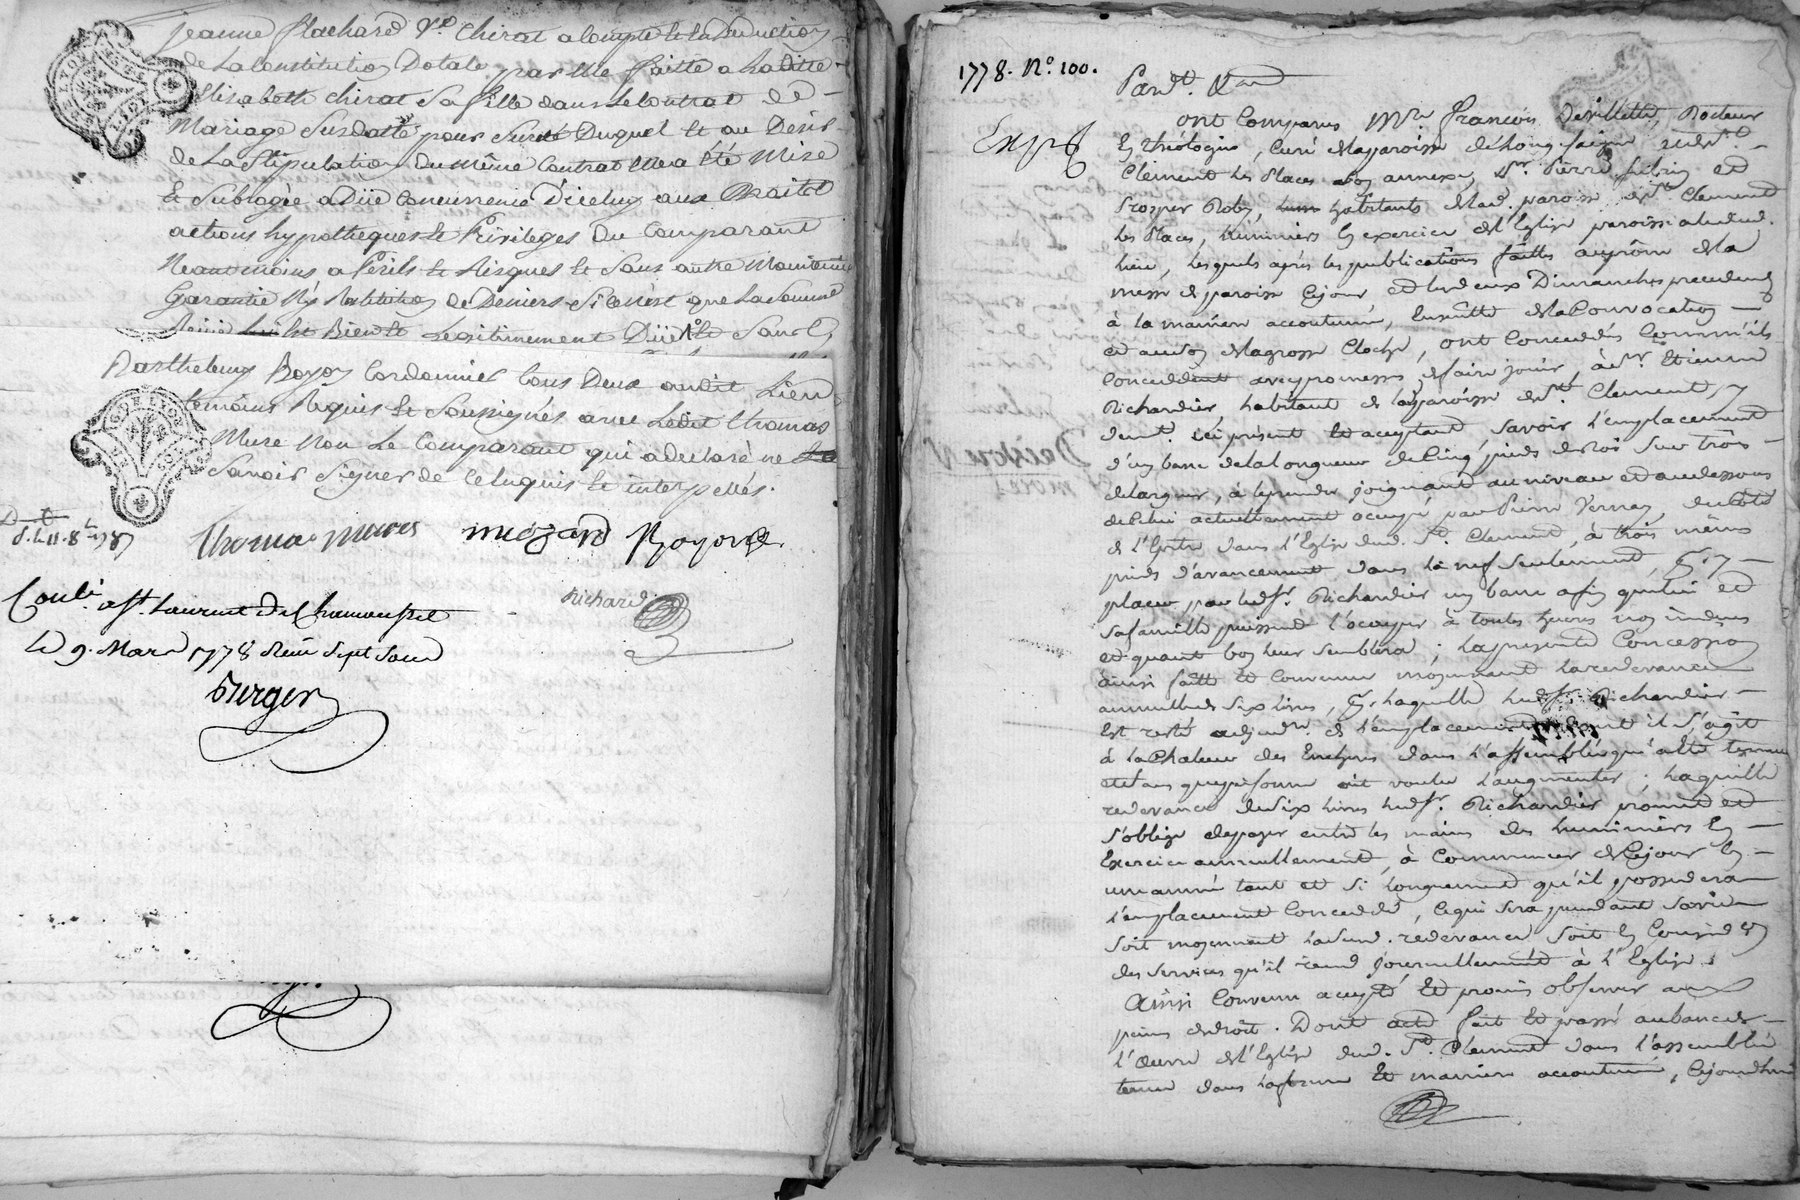 Jeanne flachard Ve. Chirat a Compte de la Deduction
de La Constitution Dotale par Elle faitte a Laditte
Elizabeth chirat Sa fille dans le Contrat de
Mariage Susdatté pour Sureté Duquel et au Desir
de La Stipulation Du Même Contrat Mura été Mise
Et Subrogée a Düe Concurrence D'iceluy aux Droits
actions hypotheques et Privileges Du Comparant
Neantmoins a Périls et Risques et Sans autre Maintenüe
Garantie Ny Restitution de Deniers Si Ce n'est que La Somme
Bien et Legitimement Düe et Sans
Barthelemy Royon Cordonnier tous Deux audit Lieu
temoins Requis et Soussignés avec Ledit thomas
Mure Non Le Comparant qui a declaré ne
Savoir Signer de Ce Enquis et interpellés.
Thomas mures
Royon
Richard
Conlé. a St. Laurent de Chamousset
Le 9. Mars 1778 Reçu Sept Sous
Burger
1778. No. 100.
Expé
Pardt.
ont Comparus Mre. françois Devillette, Docteur
En théologie, Curé de la paroisse de Longessaigne et de St.
Clement les Places son annexe, Sr. Pierre et
Prosper habitants de lad. paroisse de St. Clement
les Places, Luminiers En exercice de l'Eglise paroissiale dud.
lieu, lesquels après les publications faittes au prône de la
messe de paroisse Cejour et les deux Dimanches precedents
à la manière accoutumé, Ensuitte de la Convocation
et au son de la grosse Cloche, ont Concedés Comm'ils
Concedent avec promesses de faire jouir, à Sr. Etienne
Richardier, habitant de la paroisse de St. Clement, y
demt. ici présent Et acceptant Savoir l'emplacement
d'un banc de la Longueur de Cinq pieds de roi Sur trois
de largeur, à le prendre joignant au niveau et au dessous
de Celui actuellement occupé par Pierre Vernay, du Coté
de l'Epitre dans l'Eglise dud. St. Clement, à trois mêmes
pieds d'avancement dans la nef Seulement, Pr. y
placer par led. Sr. Richardier un banc afin que lui et
Sa famille puissent l'occuper à toutes heures non indües
et quant bon leur Semblera ; la presente Concession
ainsi faitte Et Convenue moyennant la redevance
annuelle de Six livres, Pr. laquelle led. Sr. Richardier
Est resté adjudre. de l'emplacement dont il S'agit
à la Chaleur des Encheres dans l'assemblée qui a été tenüe
et Sans que personne ait voulu l'augmenter ; Laquelle
redevance de Six livres led. Sr. Richardier promet et
S'oblige de payer entre les mains des Luminiers En
Exercice annuellement, à Commencer de Cejour En
une année tant et Si longuement qu'il possedera
l'emplacement Concedé, Ce qui Sera pendant Sa vie
Soit moyennant lad. redevance Soit En Considon
des Services qu'il rend journellement à l'Eglise.
Ainsi Convenu accepté Et promis observer aux
peines de droit. Dont acte fait Et passé au banc de
l'œuvre de l'Eglise dud. St. Clement dans l'assemblée
tenue dans la forme Et manière accoutumé, Cejourd'hui